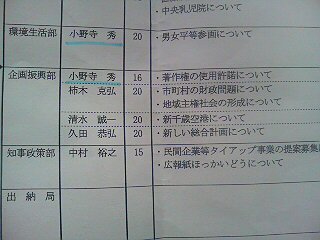 ・中央乳児院について
環境生活部 小野寺 秀 20 ・男女平等参画について
企画振興部 小野寺 秀 16 ・著作権の使用許諾について
柿木 克弘 20 ・市町村の財政問題について
・地域主権社会の形成について
清水 誠一 20 ・新千歳空港について
久田 恭弘 20 ・新しい総合計画について
知事政策部 中村 裕之 15 ・民間企業等タイアップ事業の提案募集
・広報紙ほっかいどうについて
出納局